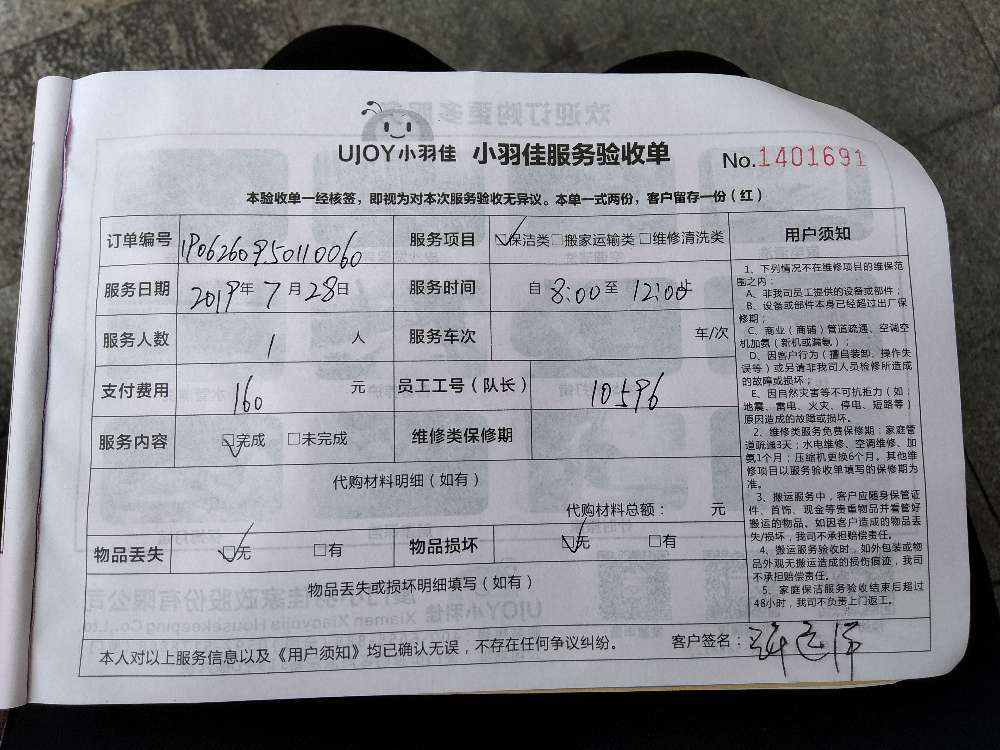 UJOY小羽佳 小羽佳服务验收单 No.1401691
本验收单一经核签，即视为对本次服务验收无异议。本单一式两份，客户留存一份（红）
订单编号 1P06260950110060 服务项目 ☑保洁类□搬家运输类□维修清洗类
服务日期 2019年7月28日 服务时间 自 8:00 至 12:00止
服务人数 1 人 服务车次 车/次
支付费用 160 元 员工工号（队长） 10596
服务内容 ☑完成 □未完成 维修类保修期
代购材料明细（如有）
代购材料总额： 元
物品丢失 ☑无 □有 物品损坏 ☑无 □有
物品丢失或损坏明细填写（如有）
本人对以上服务信息以及《用户须知》均已确认无误，不存在任何争议纠纷。 客户签名：
用户须知
1、下列情况不在维修项目的维保范
围之内：
A、非我司员工提供的设备或部件；
B、设备或部件本身已经超过出厂保
修期；
C、商业（商铺）管道疏通、空调空
机加氨（新机或漏氨）；
D、因客户行为（擅自装卸、操作失
误等）或另请非我司人员检修所造成
的故障或损坏；
E、因自然灾害等不可抗拒力（如：
地震、雷电、火灾、停电、短路等）
原因造成的故障或损坏。
2、维修类服务免费保修期：家庭管
道疏通3天；水电维修、空调维修、加
氨1个月；压缩机更换6个月。其他维
修项目以服务验收单填写的保修期为
准。
3、搬运服务中，客户应随身保管证
件、首饰、现金等贵重物品并看管好
搬运的物品。如因客户造成的物品丢
失/损坏，我司不承担赔偿责任。
4、搬运服务验收时，如外包装或物
品外观无搬运造成的损伤痕迹，我司
不承担赔偿责任。
5、家庭保洁服务验收结束后超过
48小时，我司不负责上门返工。